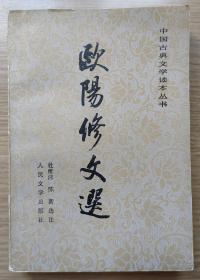 中国古典文学读本丛书
歐陽修文選
杜维沫 陈新选注
人民文学出版社